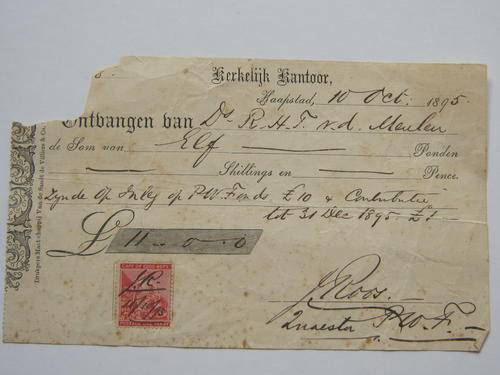 s.
Kerkelijk Kantoor,
Kaapstad, 10 Oct. 1895.
Ontvangen van Ds. R. H. T. v. d. Meulen
de Som van Elf Ponden
Shillings en Pence.
Zynde Op Inleg op P.W. Fonds £10 & Contributie
tot 31 Dec 1895 £1-
£ 11-0-0
J Roos.
Quaestor P.W.F.
CAPE OF GOOD HOPE
J.R.
10/10/95
Drukpers Maatschappij Van de Sandt de Villiers & Co.